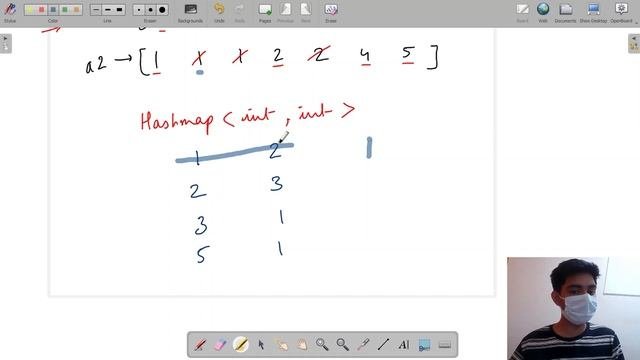 Stylus
Color
Line
Eraser
Undo
Redo
Pages
Previous
Next
Erase
Background
Desktop
Show Desktop
OpenBoard
a2 → [ 1 1 1 2 2 4 5 ]
Hashmap < int , int >
1 2 1
2 3
3 1
5 1